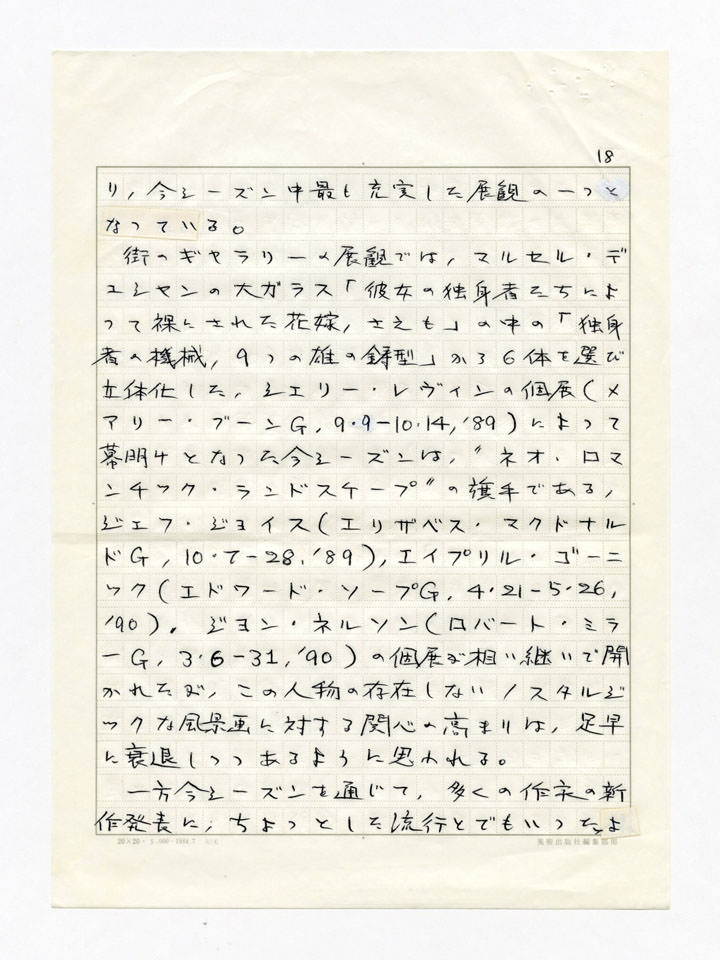 18
り,今シーズン中最も充実した展観の一つと
なっている。
街のギャラリーの展観では,マルセル・デ
ュシャンの大ガラス「彼女の独身者たちによ
って裸にされた花嫁,さえも」の中の「独身
者の機械,9つの雄の鋳型」から6体を選び
立体化した,シェリー・レヴィンの個展(メ
アリー・ブーンG,9・9-10・14,'89)によって
幕明けとなった今シーズンは,〝ネオ・ロマ
ンチック・ランドスケープ〟の旗手である,
ジェフ・ジョイス(エリザベス・マクドナル
ドG,10・7-28,'89),エイプリル・ゴーニ
ック(エドワード・ソープG,4・21-5・26,
'90),ジョン・ネルソン(ロバート・ミラ
ーG,3・6-31,'90)の個展が相い継いで開
かれたが,この人物の存在しないノスタルジ
ックな風景画に対する関心の高まりは,足早
に衰退しつつあるように思われる。
一方今シーズンを通じて,多くの作家の新
作発表に,ちょっとした流行とでもいったよ
20×20・5,000・1984.7
美術出版社編集部用